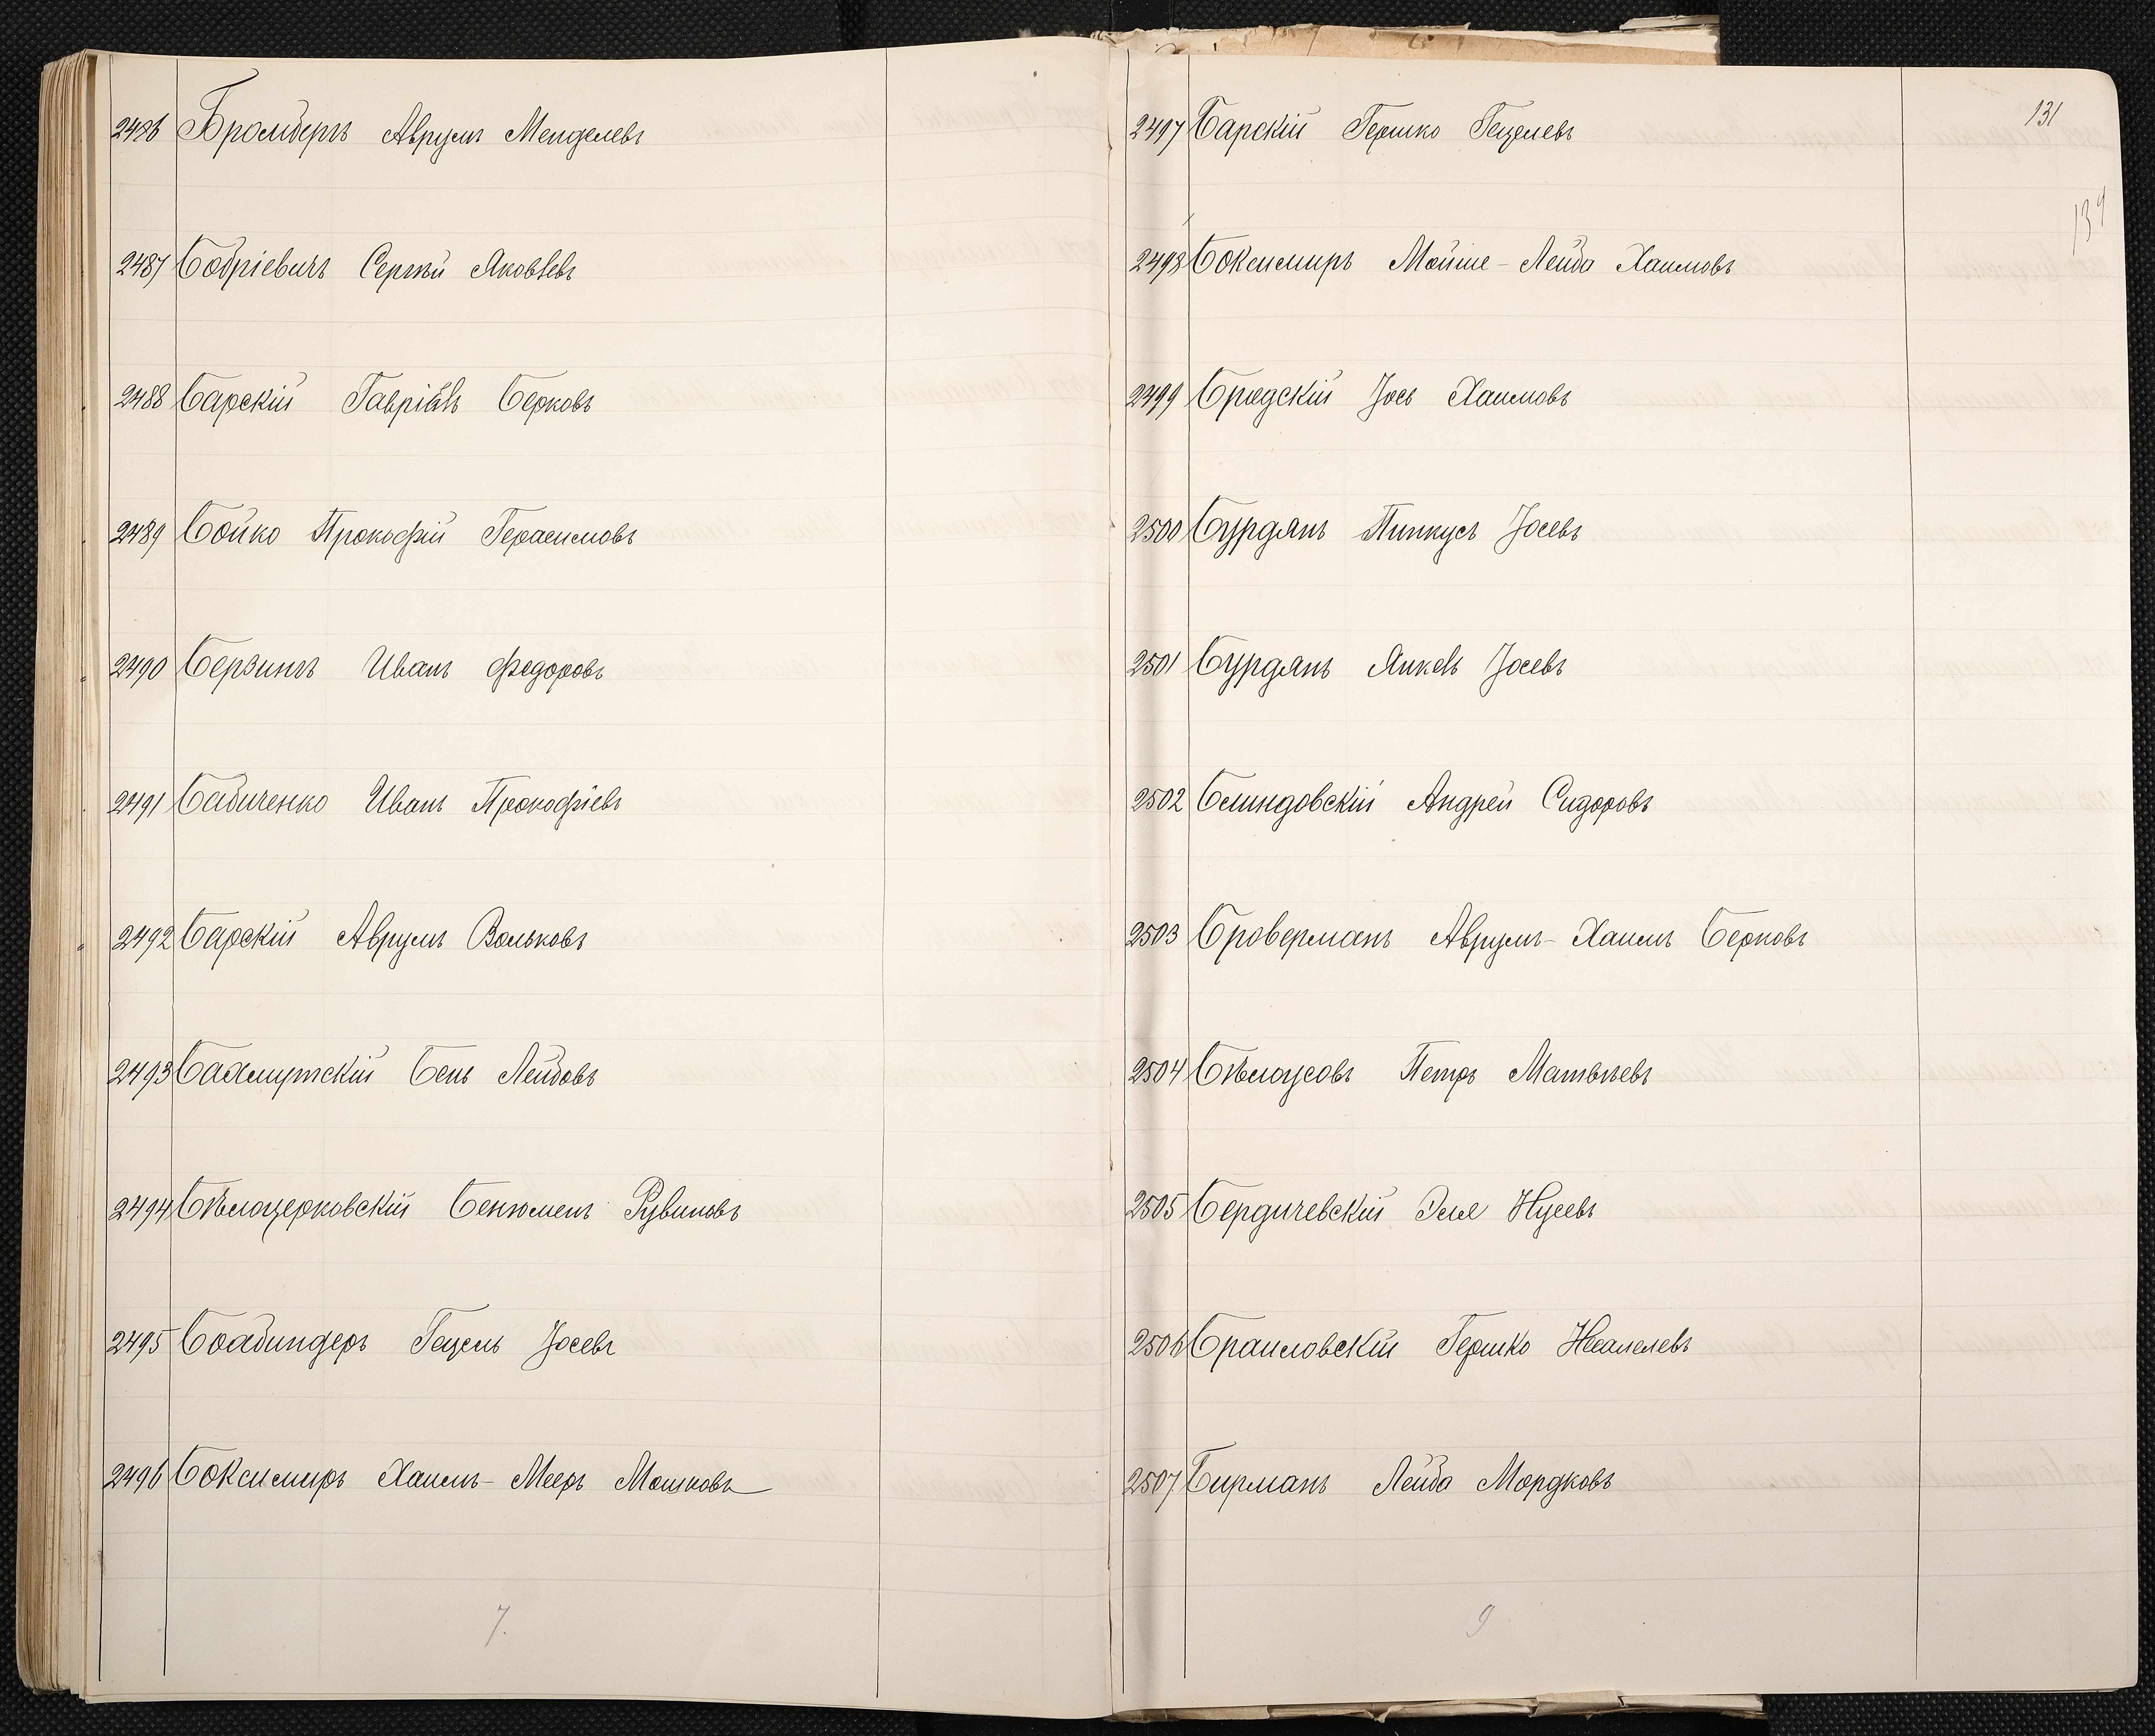 2486 Бромбергъ Аврумъ Менделевъ
2487 Бобріевичъ Сергѣй Яковлевъ
2488 Барскій Гавріилъ Берковъ
2489 Бойко Прокофій Герасимовъ
2490 Берзинъ Иванъ Федоровъ
2491 Бабиченко Иванъ Прокофіевъ
2492 Барскій Аврумъ Вольковъ
2493 Бахмутскій Бень Лейбовъ
2494 Бѣлоцерковскій Бенюмень Рувиновъ
2495 Гецель Іосевъ
2496 Боксимиръ Хаимъ-Мееръ Мошковъ
7.
131
139
2497 Барскій Гершко Гецелевъ
2498 Боксимиръ Мойше-Лейба Хаимовъ
2499 Бродскій Іось Хаимовъ
2500 Бурдянъ Пинкусъ Іосевъ
2501 Бурдянъ Янкель Іосевъ
2502 Блиндовскій Андрей Сидоровъ
2503 Броверманъ Аврумъ-Хаимъ Берковъ
2504 Бѣлоусовъ Петръ Матвѣевъ
2505 Бердичевскій Эля Нусевъ
2506 Браиловскій Гершко
2507 Бирманъ Лейба Мордковъ
9